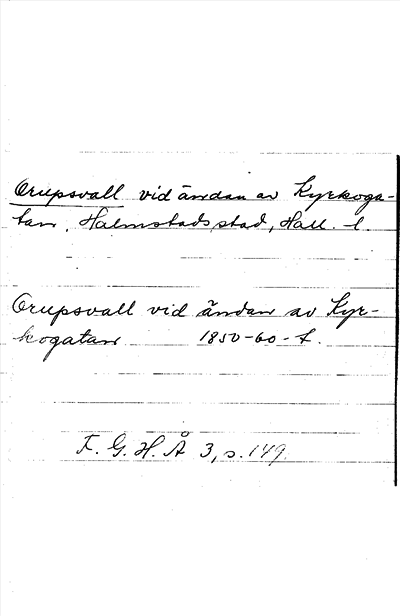 Orupsvall vid ändan av Kyrkoga-
tan, Halmstads stad, Hall. l.
Orupsvall vid ändan av Kyr-
kogatan 1850-60-t.
F. G. H. Å 3, s. 149.